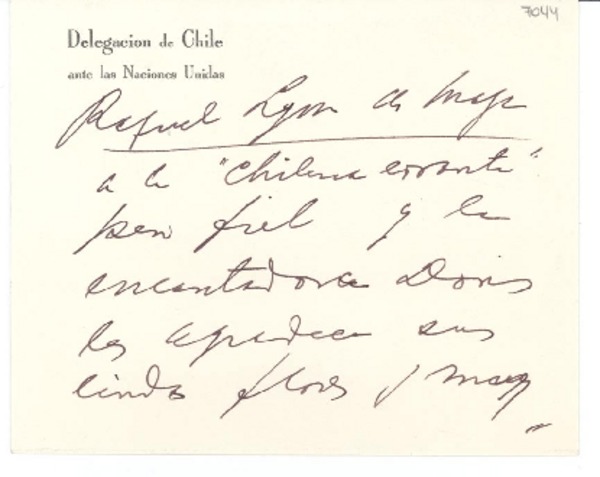 7044
Delegacion de Chile
ante las Naciones Unidas
Raquel Lyon de
a la "chilena errante"
pero fiel y la
encantadora Doris
les agradece sus
lindas flores y